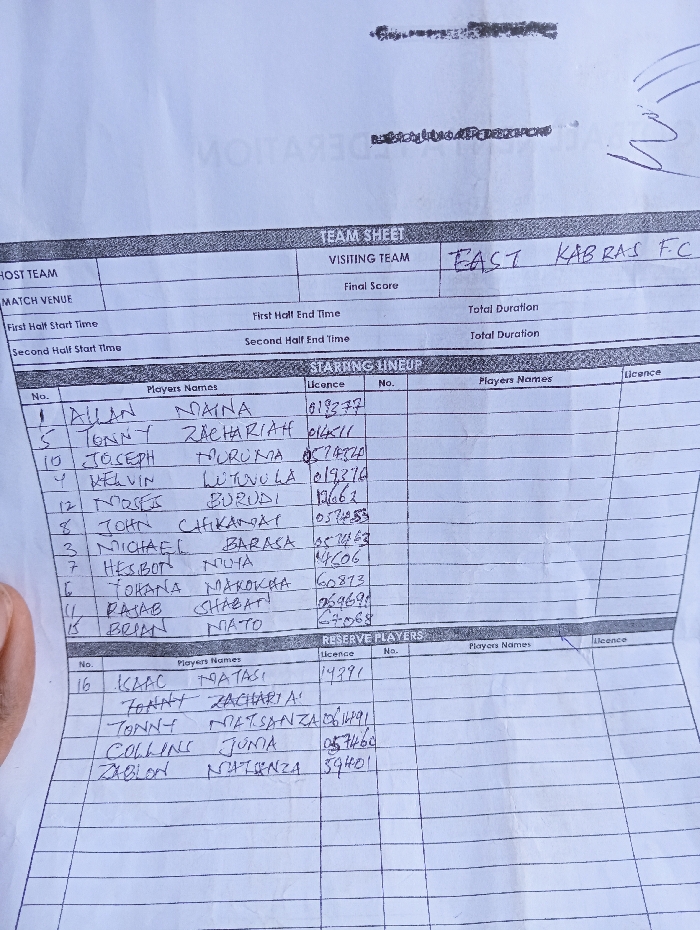 TEAM SHEET
HOST TEAM VISITING TEAM EAST KABRAS F.C
MATCH VENUE Final Score
First Half Start Time First Half End Time Total Duration
Second Half Start Time Second Half End Time Total Duration
STARTING LINEUP
No. Players Names Licence No. Players Names Licence
1 ALLAN MAINA 019377
5 TONNY ZACHARIAH 014511
10 JOSEPH MURUMA
4 KELVIN LUTUVULA 019376
12 MOSES BURUDI 12662
8 JOHN
3 MICHAEL BARASA
7 HESBON MUYA 14606
6 YOHANA MAKOKHA 60873
11 RAJAB SHABAN
15 BRIAN MATO 67068
RESERVE PLAYERS
No. Players Names Licence No. Players Names Licence
16 ISAAC MATASI 14391
TONNY ZACHARIA
TONNY MATSANZA 061491
COLLINS JUMA 057460
ZABLON MATSANZA 59401